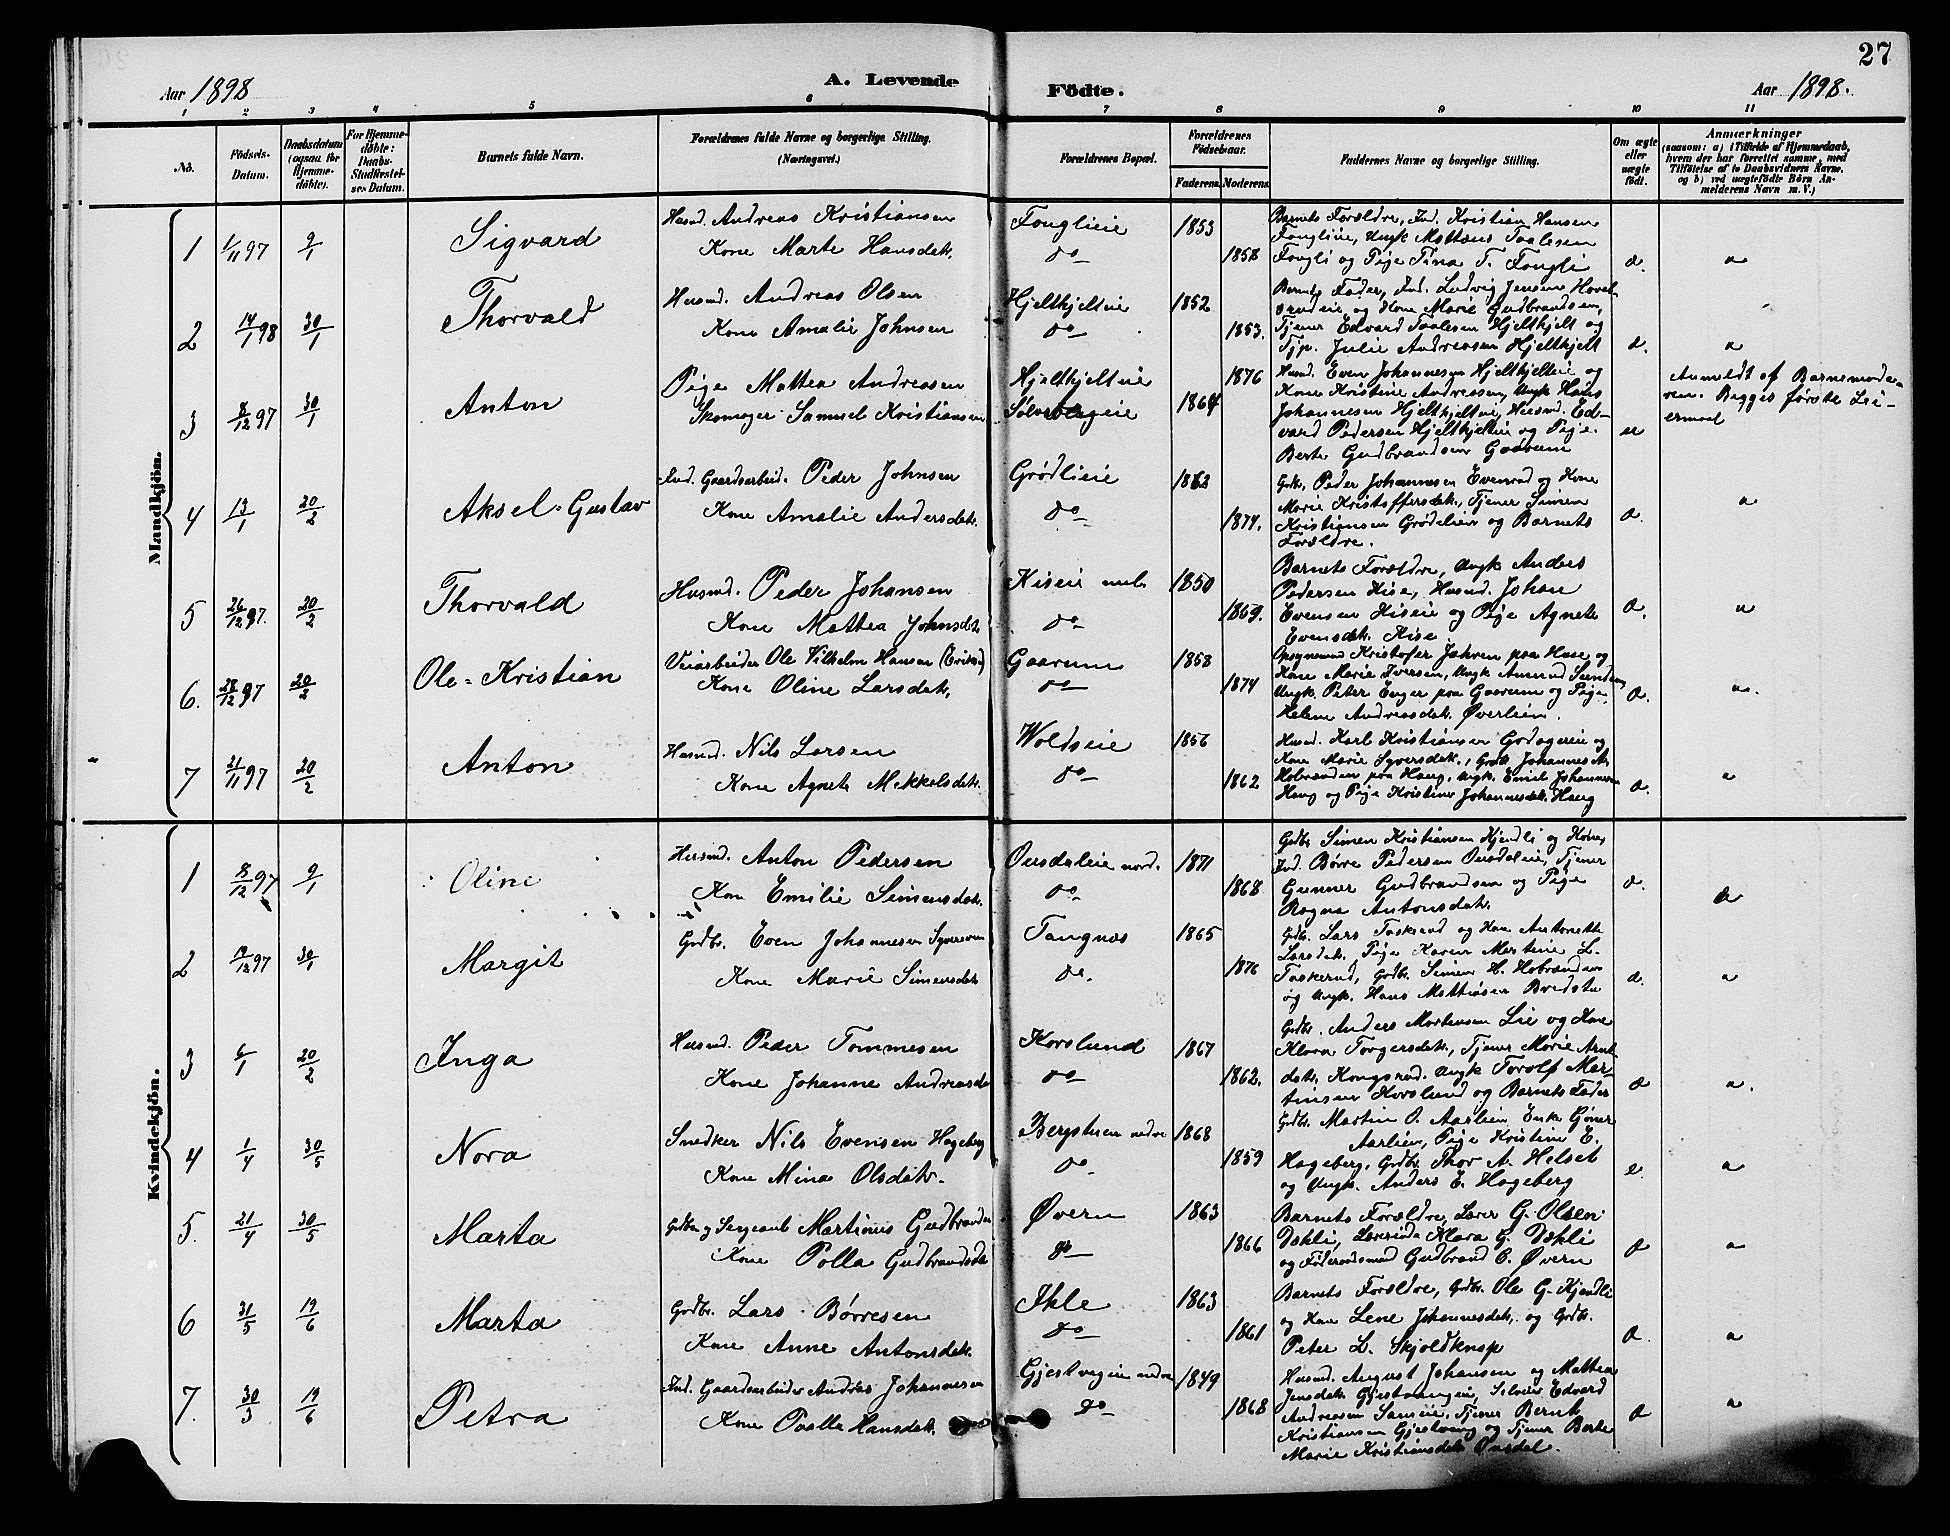 27
Aar 1898
A. Levende
Födte.
Aar 1898.
1 2 3 4 5 6 7 8 9 10 11
No.
Födsels-
Datum.
Daabsdatum
(ogsaa for
Hjemme-
döbte).
For Hjemme-
döbte:
Daabs-
Stadfæstel-
ses-Datum.
Barnets fulde Navn.
Forældrenes fulde Navne og borgerlige Stilling.
(Næringsvei.)
Forældrenes Bopæl.
Forældrenes
Födselsaar.
Faderens. Moderens.
Faddernes Navne og borgerlige Stilling.
Om ægte
eller
uægte
födt.
Anmærkninger
(saasom: a) i Tilfælde af Hjemmedaab,
hvem der har forrettet samme, med
Tilföielse af to Daabsvidners Navne,
og b) ved uægtefödte Börn An-
melderens Navn m. V.)
Mandkjön.
1 1/11 97 9/1 Sigvard
Husmd. Andreas Kristiansen
Kone Marte Hansdatr.
Fonglieie
do
1853
1858
Barnets Forældre, Ind. Kristian Hansen
Fonglieie, Ungk Mattæus Taalesen
Fongli og Pige Tina T. Fongli
æ.
"
2 14/1 98 30/1 Thorvald
Husmd. Andreas Olsen
Kone Amalie Johnsen
Hjeltkjelteie
do
1852
1853.
Barnets Fader, Ind. Ludvig Jensen
og Kone Marie Gudbrandsen,
Tjener Edvard Taalesen Hjeltkjelt og
Tjp. Julie Andreasen Hjeltkjelt
æ.
"
3 8/12 97 30/1 Anton
Pige Mattea Andreasen
Skomager Samuel Kristiansen
Hjeltkjelteie
Sølvbergeie
1876
1864
Husmd. Even Johannesen Hjeltkjelteie og
Kone Kristine Andreasen, Ungk Hans
Johannesen Hjeltkjelteie, Husmd. Ed-
vard Pedersen Hjeltkjelteie og Pige
Berte Gudbrandsen Gaarum
u
Anmeldt af Barnemode-
ren. Begges første Lei-
ermaal
4 13/1 20/2 Aksel-Gustav
Ind. Gaardsarbeid. Peder Johnsen
Kone Amalie Andersdatr.
Grødlieie
do
1862
1874.
Gdb. Peder Johannesen Evenrud og Kone
Marie Kristoffersdatr., Tjener Simen
Kristiansen Grødlien og Barnets
Forældre.
æ.
"
5 26/12 97. 20/2 Thorvald
Husmd. Peder Johansen
Kone Mattea Johnsdatr
Kiseie
do
1850
1869.
Barnets Forældre, Ungk Anders
Pedersen Kise, Husmd. Johan
Evensen Kiseie og Pige Agnete
Evensdatr. Kise
æ.
"
6. 28/12 97 20/2 Ole-Kristian
Veiarbeider Ole Vilhelm Hansen
Kone Oline Larsdatr.
Gaarum
do
1858
1874
Opsynsmd Kristofer Jahren paa Hase og
Kone Marie Iversen, Ungk
Ungk. Peter Enger paa Gaarum og Pige
Helene Andreasdatr. Øverlien.
æ.
"
7 21/11 97 20/2 Anton
Husmd. Nils Larsen
Kone Agnete Mikkelsdatr.
Woldseie
do
1856
1862
Husmd. Karl Kristiansen Godagereie og
Kone Marie Syversdatr., Gdb. Johannes
paa Haug, Ungk. Emil Johannesen
Haug og Pige Kristine Johannesdatr. Haug
æ.
"
Kvindekjön.
1 8/12 97 9/1 Oline
Husmd. Anton Pedersen
Kone Emilie Simensdatr.
Ousdaleie nord.
do
1871
1868
Gdbr. Simen Kristiansen Hjendli og Kone,
Ind. Børre Pedersen Ousdaleie, Tjener
Gunner Gudbrandsen og Pige
Ragna Antonsdatr.
æ.
"
2 30/1 Margit
Gdbr. Even Johannesen
Kone Marie Simensdatr
Tangnæs
do.
1865
1876
Gdb. Lars Taskerud og Kone Antonette
Larsdatr., Pige Karen Martine L.
Taskerud, Gdb. Simen H. Hobranden
og Ungk. Hans Mattiasen
æ.
"
3 6/1 20/2 Inga
Husmd Peder Tommesen
Kone Johanne Andreasda
Korslund
do
1867
1862.
Gdbr. Anders Mortensen Lie og Kone
Klara Torgersdatr., Tjener Marie
datr. Kongsrud. Ungk Torolf Mar-
tinsen Korslund og Barnets Fader
æ
".
4 1/4 30/5 Nora
Snedker Nils Evensen Hageberg
Kone Mina Olsdatr.
nedre
do.
1868
1859
Gdbr. Martin O. Aarlien, Enke
Aarlien, Pige Kristine E.
Hageberg, Gdbr. Thor A. Helset
og Ungk. Anders E. Hageberg
"
5. 21/4 30/5 Marta
Gdbr og Sergeant Martinus Gudbrandsen
Kone Polla Gudbrandsda
Øvern
do
1863
1866
Barnets Forældre, Lærer G. Olsen
Dæhli, Lærerinde Klara G. Dæhli
og Føderaadsmand Gudbrand O. Øvern
æ
"
6 31/5 19/6 Marta
Gdbr. Lars Børresen
Kone Anne Antonsdatr.
Ihle
do
1863
1861
Barnets Forældre, Gdbr. Ole G. Hjendli
og Kone Lene Johannesdatr. og Gdb.
Peter L. Skjoldknap
æ.
"
7. 30/3 19/6 Petra
Ind. Gaardsarbeider Andreas Johannesen
Kone Paalla Hansdatr.
Gjestvangeie nedre
do
1849
1868
Husmd. August Johansen og Mattea
Jensdatr. Gjestvangeie, Edvard
Andreasen Tjener Bernt
Kristiansen Gjestvang og Tjener Berte
Marie Kristiansdatr. Ousdal.
æ
"